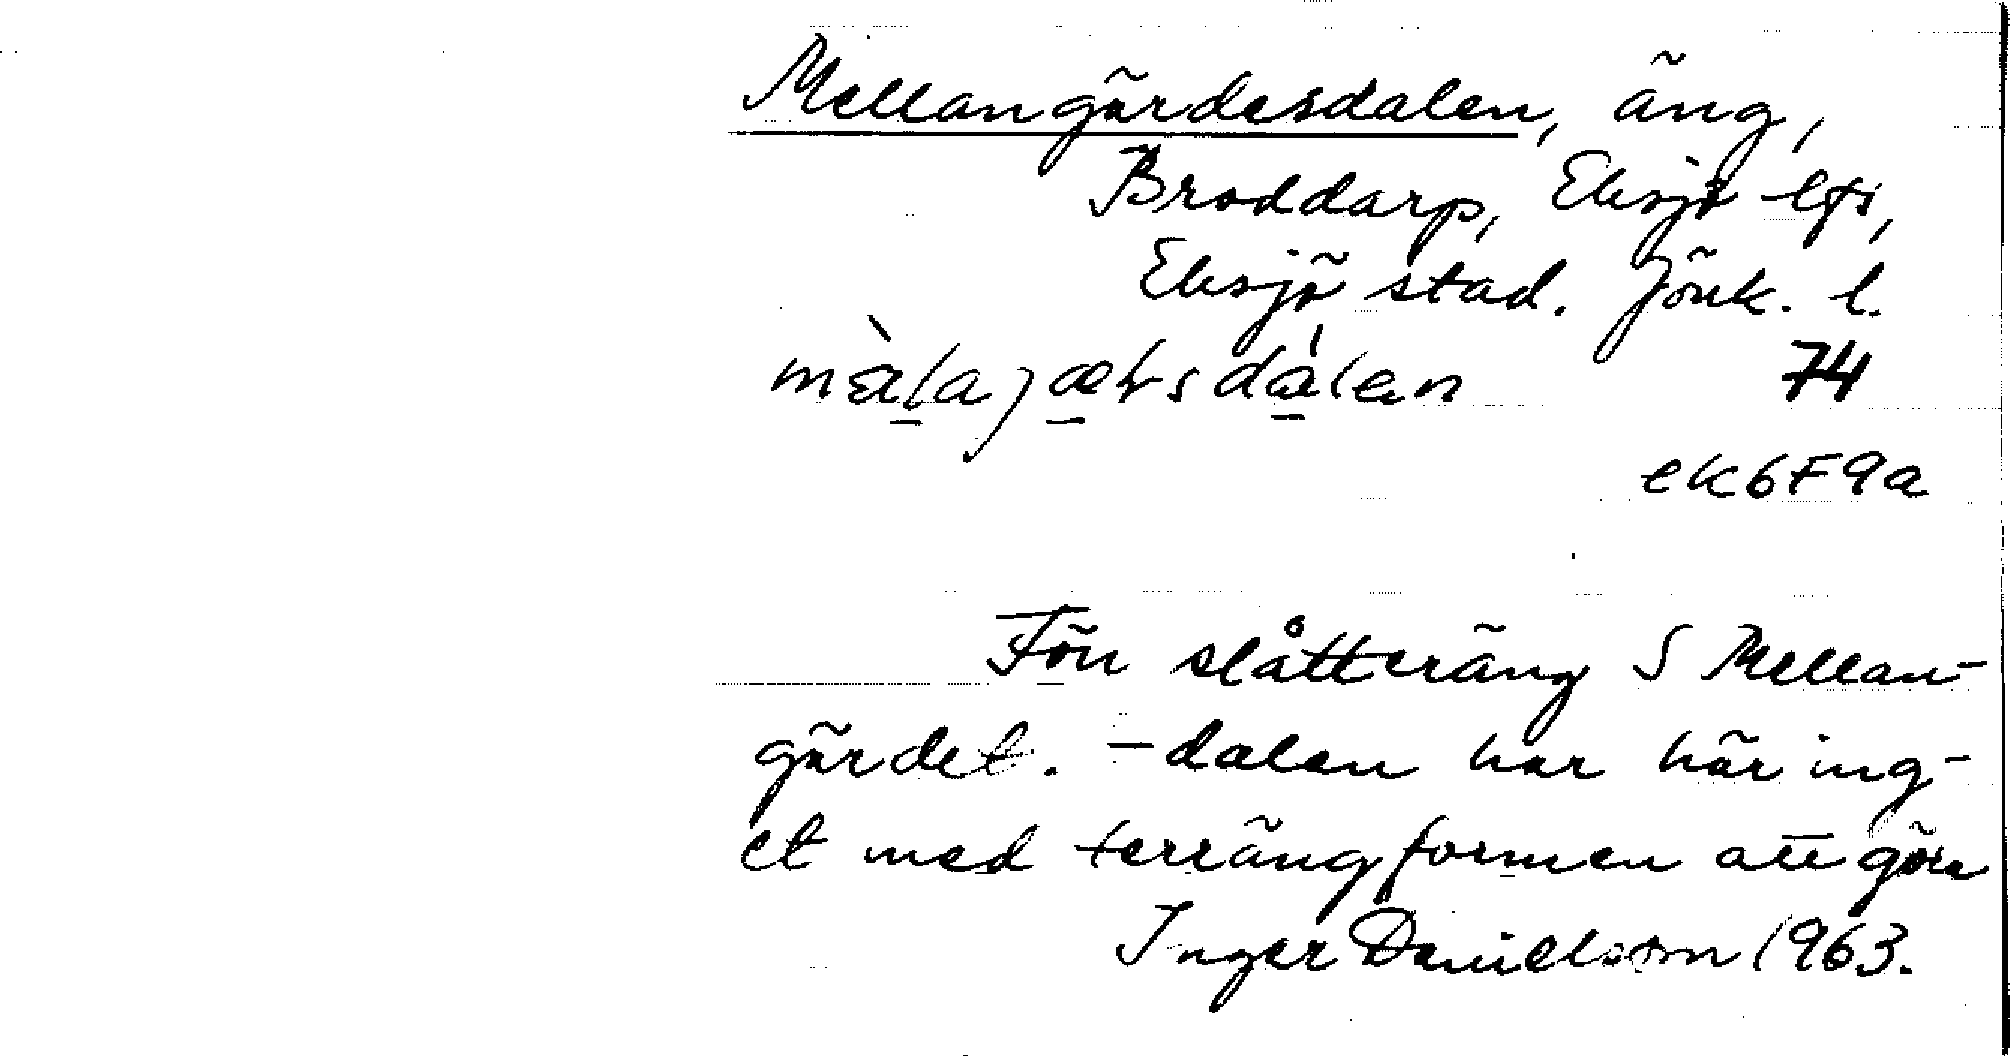 Mellangärdesdalen, äng,
Broddarp, Eksjö lfs,
Eksjö stad. Jönk. l.
74
ek6F9a
Förr slåtteräng S Mellan-
gärdet. -dalen har här ing-
et med terrängformen att göra
Inger Danielsson 1963.